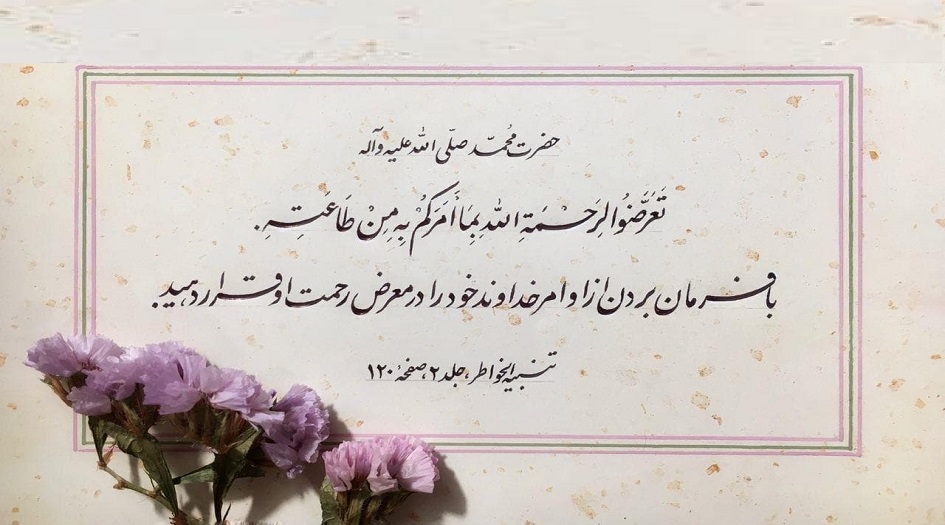 حضرت محمّد صلّی الله علیه وآله
تَعَرَّضُوا لِرَحْمَةِ اللهِ بِمَا أَمَرَكُمْ بِهِ مِنْ طَاعَتِهِ.
با فرمان بردن از اوامر خداوند خود را در معرض رحمت او قرار دهید.
تنبیه الخواطر، جلد ۲، صفحهٔ ۱۲۰